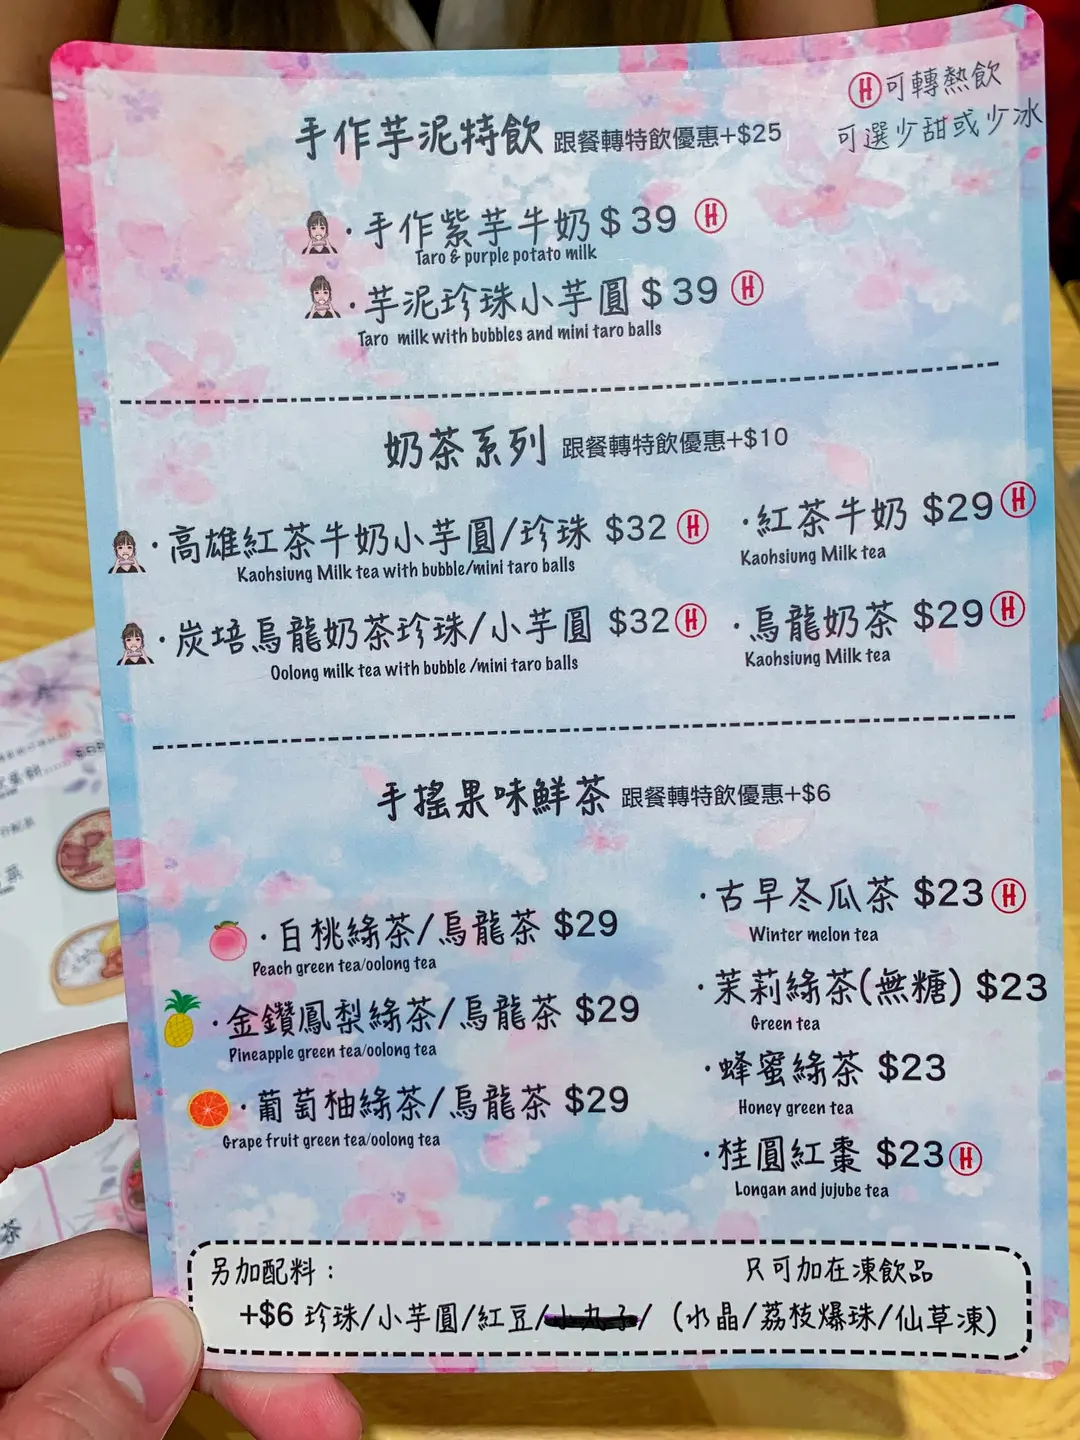 Ⓗ可轉熱飲
可選少甜或少冰
手作芋泥特飲 跟餐轉特飲優惠+$25
·手作紫芋牛奶 $39 Ⓗ
Taro & purple potato milk
·芋泥珍珠小芋圓 $39 Ⓗ
Taro milk with bubbles and mini taro balls
奶茶系列 跟餐轉特飲優惠+$10
·高雄紅茶牛奶小芋圓/珍珠 $32 Ⓗ
Kaohsiung Milk tea with bubble/mini taro balls
·紅茶牛奶 $29 Ⓗ
Kaohsiung Milk tea
·炭培烏龍奶茶珍珠/小芋圓 $32 Ⓗ
Oolong milk tea with bubble /mini taro balls
·烏龍奶茶 $29 Ⓗ
Kaohsiung Milk tea
手搖果味鮮茶 跟餐轉特飲優惠+$6
·白桃綠茶/烏龍茶 $29
Peach green tea/oolong tea
·金鑽鳳梨綠茶/烏龍茶 $29
Pineapple green tea/oolong tea
·葡萄柚綠茶/烏龍茶 $29
Grape fruit green tea/oolong tea
·古早冬瓜茶 $23 Ⓗ
Winter melon tea
·茉莉綠茶(無糖) $23
Green tea
·蜂蜜綠茶 $23
Honey green tea
·桂圓紅棗 $23 Ⓗ
Longan and jujube tea
另加配料：
+$6 珍珠/小芋圓/紅豆/小丸子/
只可加在凍飲品
(水晶/荔枝爆珠/仙草凍)
茶